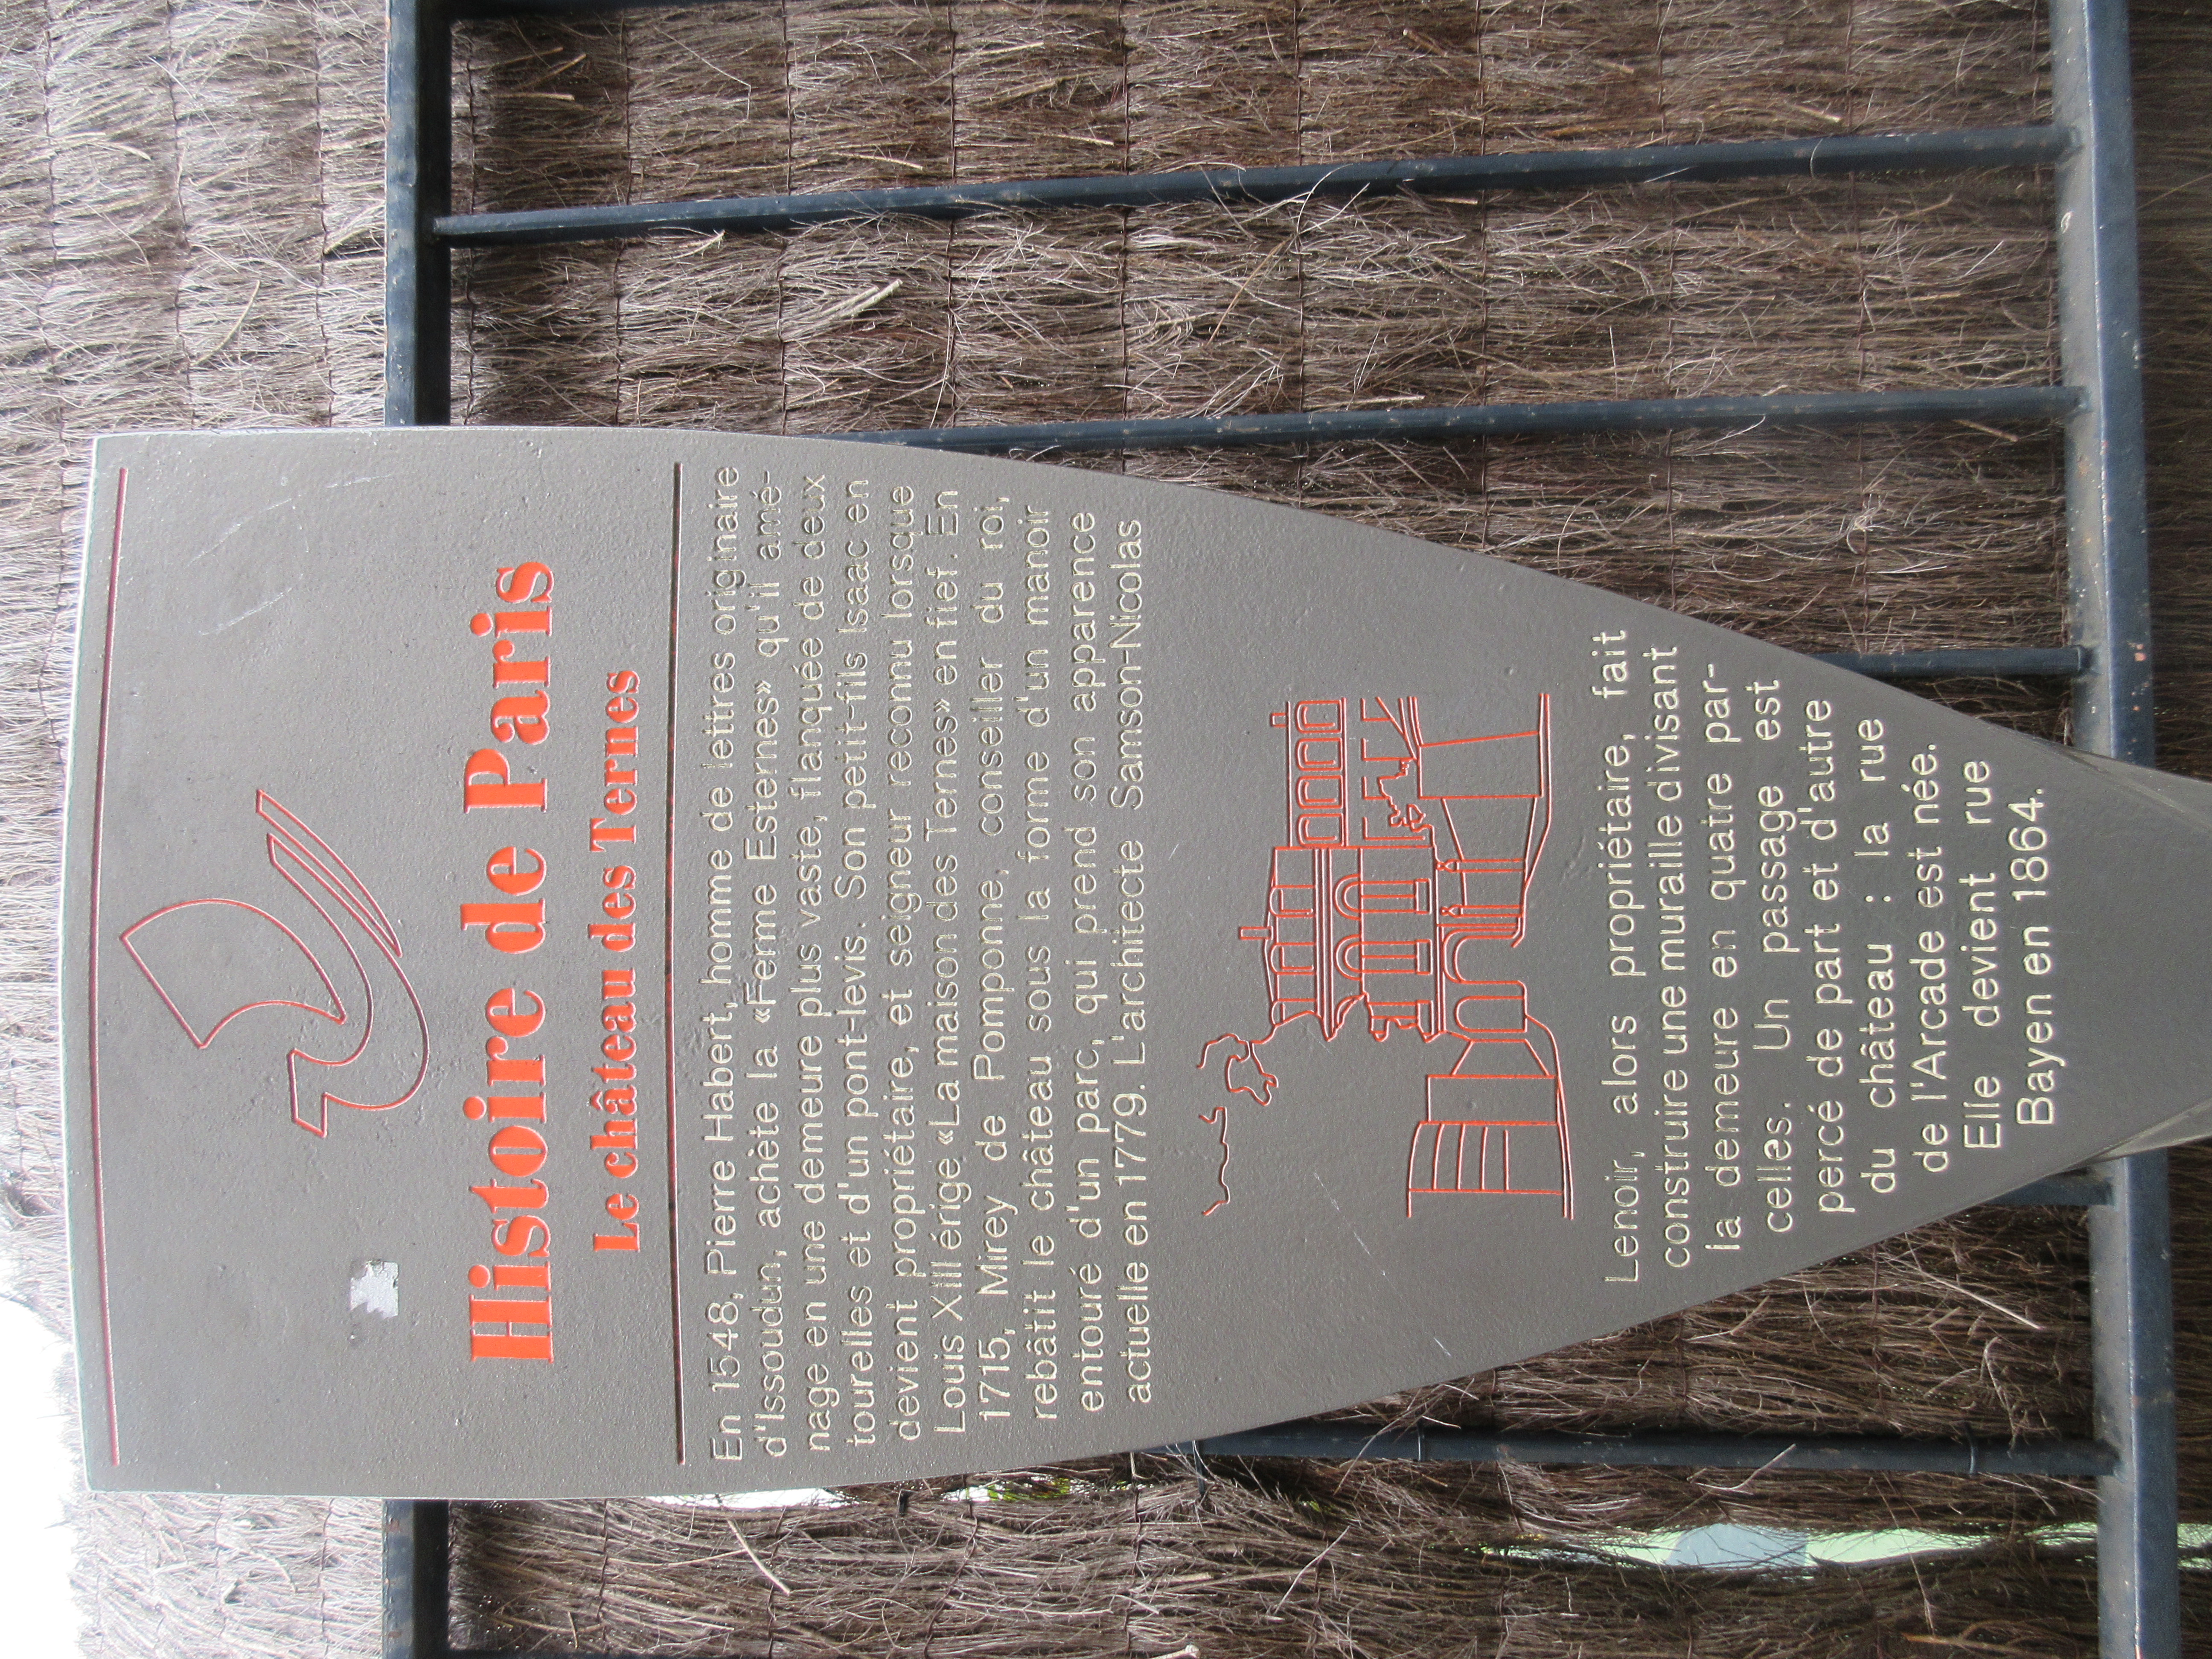 Histoire de Paris
Le château des Ternes
En 1548, Pierre Habert, homme de lettres originaire
d'Issoudun, achète la «Ferme Esternes» qu'il amé-
nage en une demeure plus vaste, flanquée de deux
tourelles et d'un pont-levis. Son petit-fils Isaac en
devient propriétaire, et seigneur reconnu lorsque
Louis XIII érige «La maison des Ternes» en fief. En
1715, Mirey de Pomponne, conseiller du roi,
rebâtit le château sous la forme d'un manoir
entouré d'un parc, qui prend son apparence
actuelle en 1779. L'architecte Samson-Nicolas
Lenoir, alors propriétaire, fait
construire une muraille divisant
la demeure en quatre par-
celles. Un passage est
percé de part et d'autre
du château : la rue
de l'Arcade est née.
Elle devient rue
Bayen en 1864.